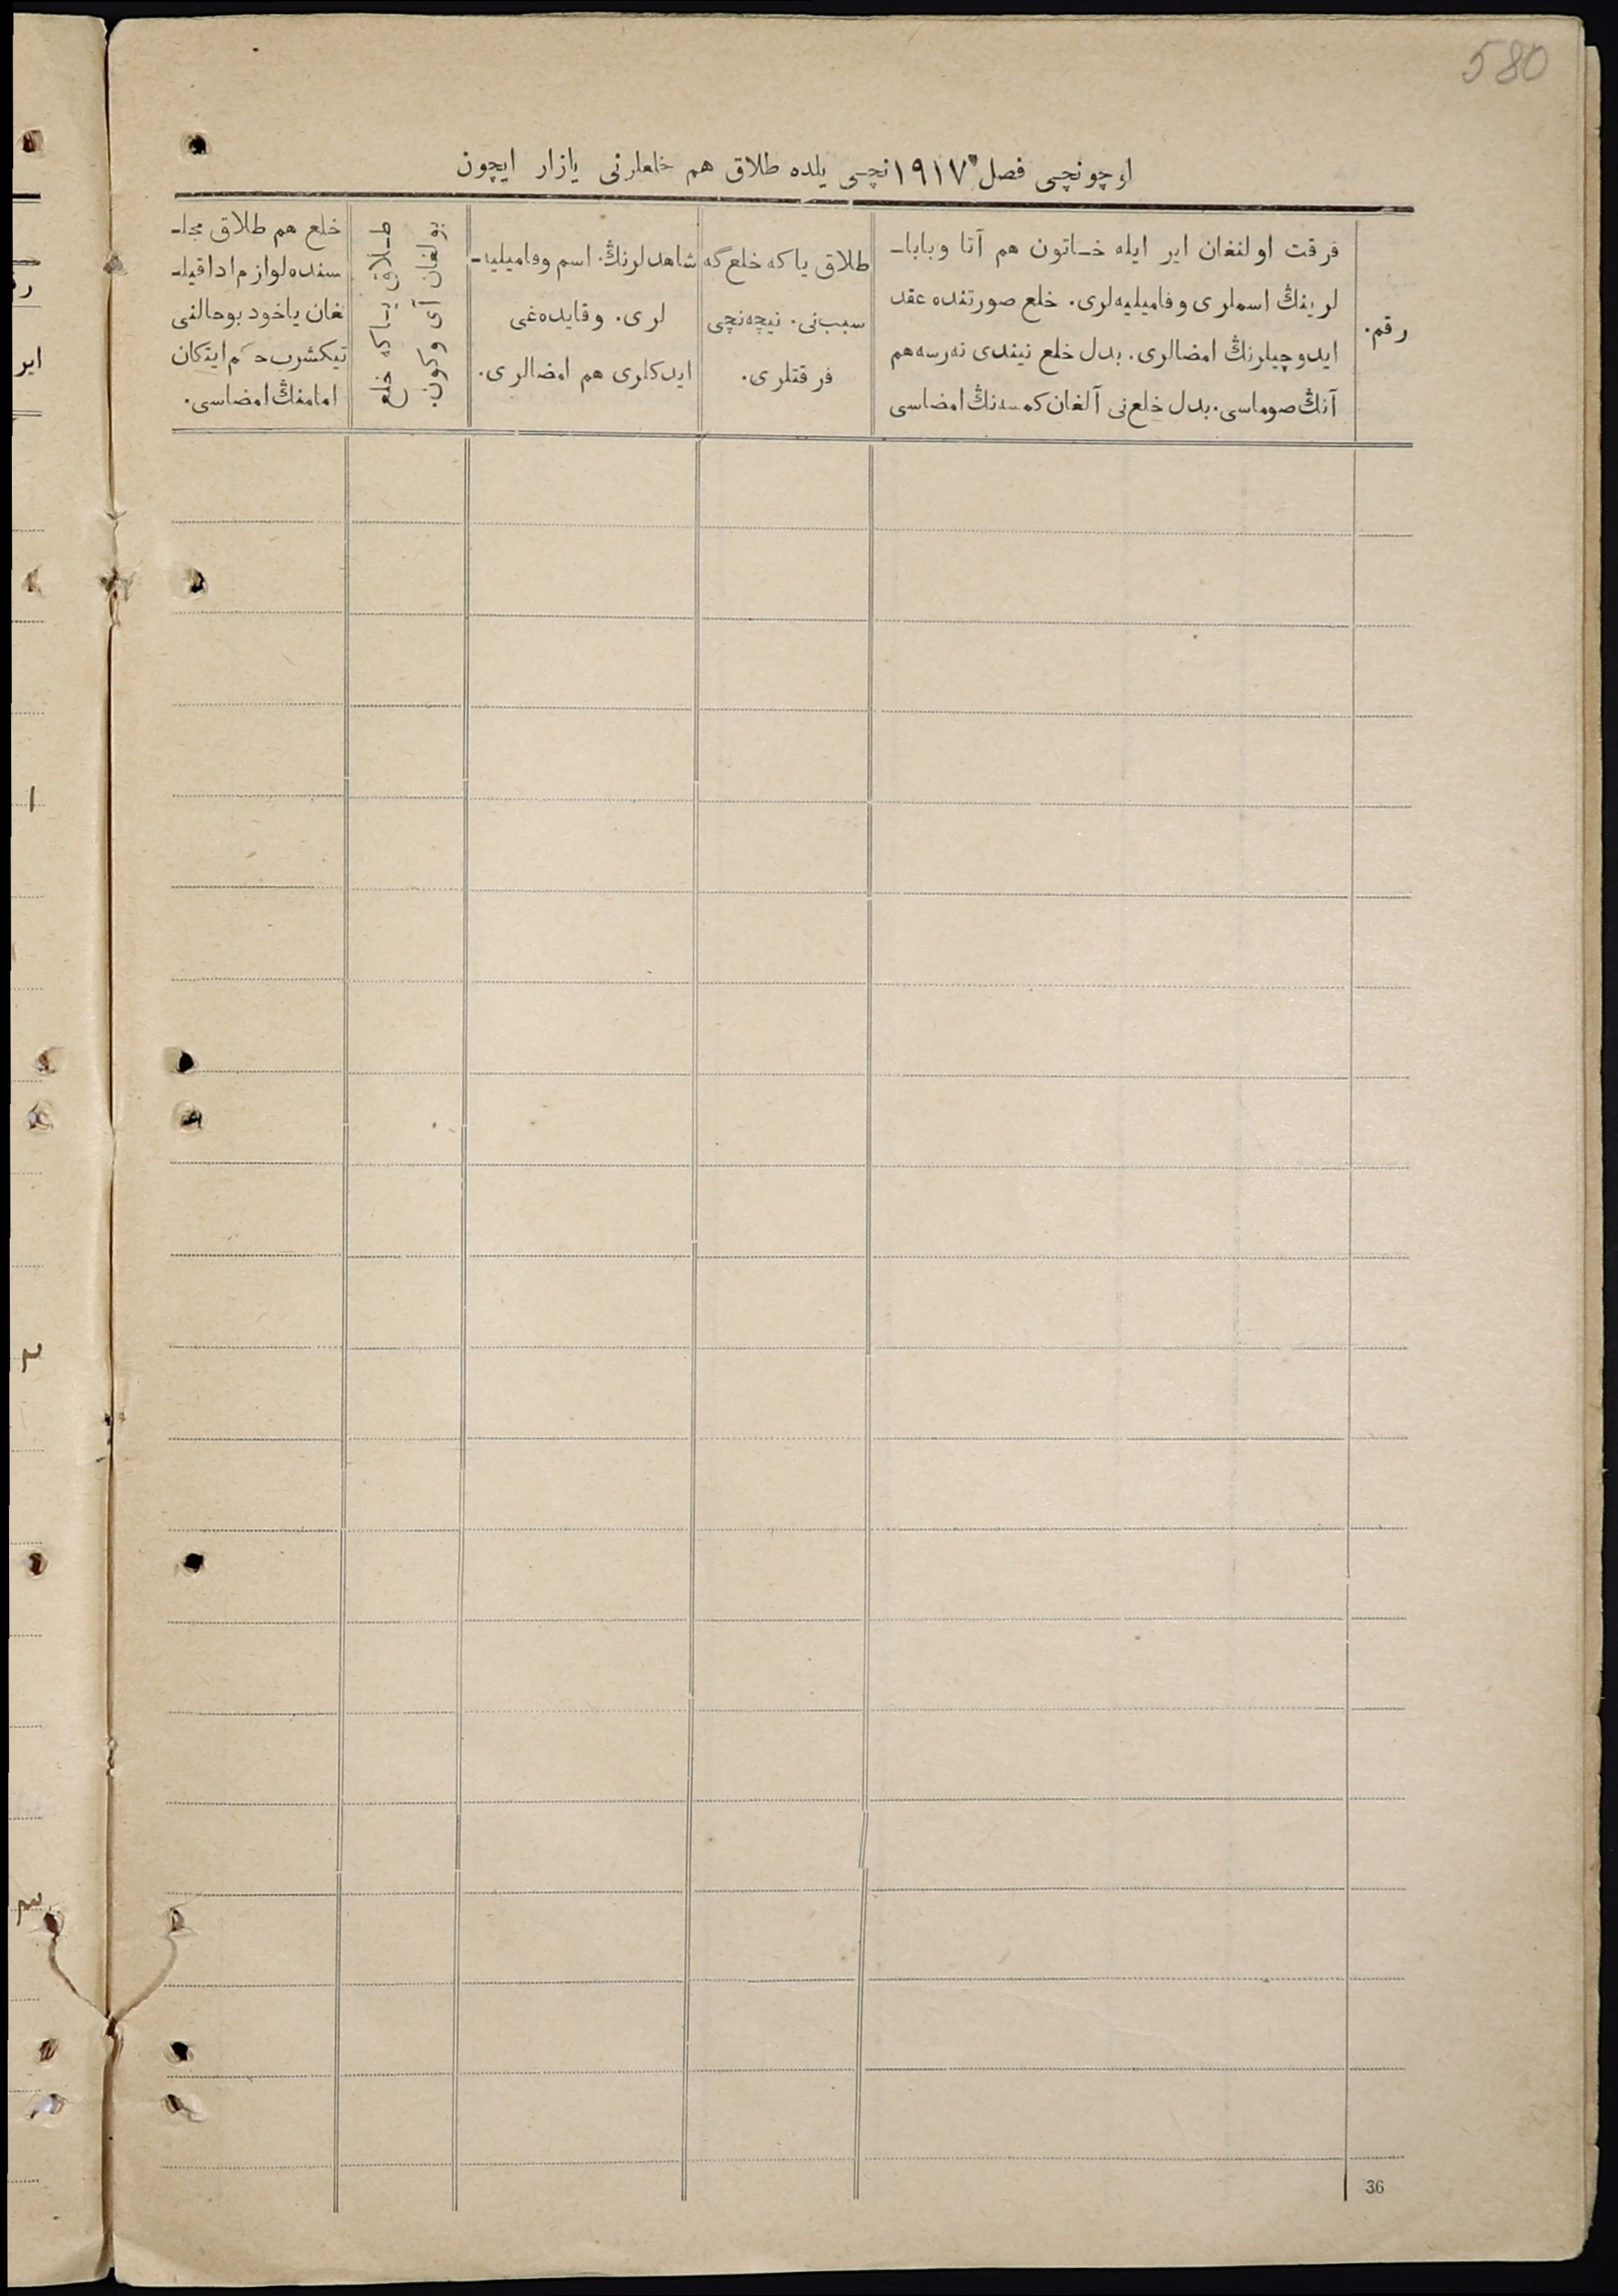 580
اوچونچی فصل ١٩١٧ نچی یلده طلاق هم خلعلرنی یازار ایچون
رقم.
فرقت اولنغان ایر ایله خـاتون هم آتا وباباـ
لرینڭ اسملری وفامیلیه‌لری. خلع صورتنده عقد
ایدوچیلرنڭ امضالری. بدل خلع نیندی نه‌رسه‌هم
آنڭ صوماسی. بدل خلع‌نی آلغان کمسه‌نڭ امضاسی
طلاق یاکه خلع‌گه
سبب‌نی. نیچه‌نچی
فرقتلری.
شاهدلرنڭ اسم وفامیلیه‌ـ
لری. وقایده‌غی
ایدکلری هم امضالری.
طـلاق یـاکه خلع
بولغان آی وکون.
خلع هم طلاق مجلـ
سنده لوازم ادا قیلـ
غان یاخود بوحالنی
تیکشرب حکم ایتکان
امامنڭ امضاسی.
36
ایر
١
٢
٣